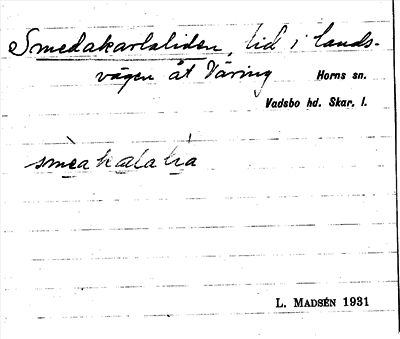 Smedakarlaliden, lid i lands-
vägen åt Väring Horns sn.
Vadsbo hd. Skar. l.
L. MADSÉN 1931